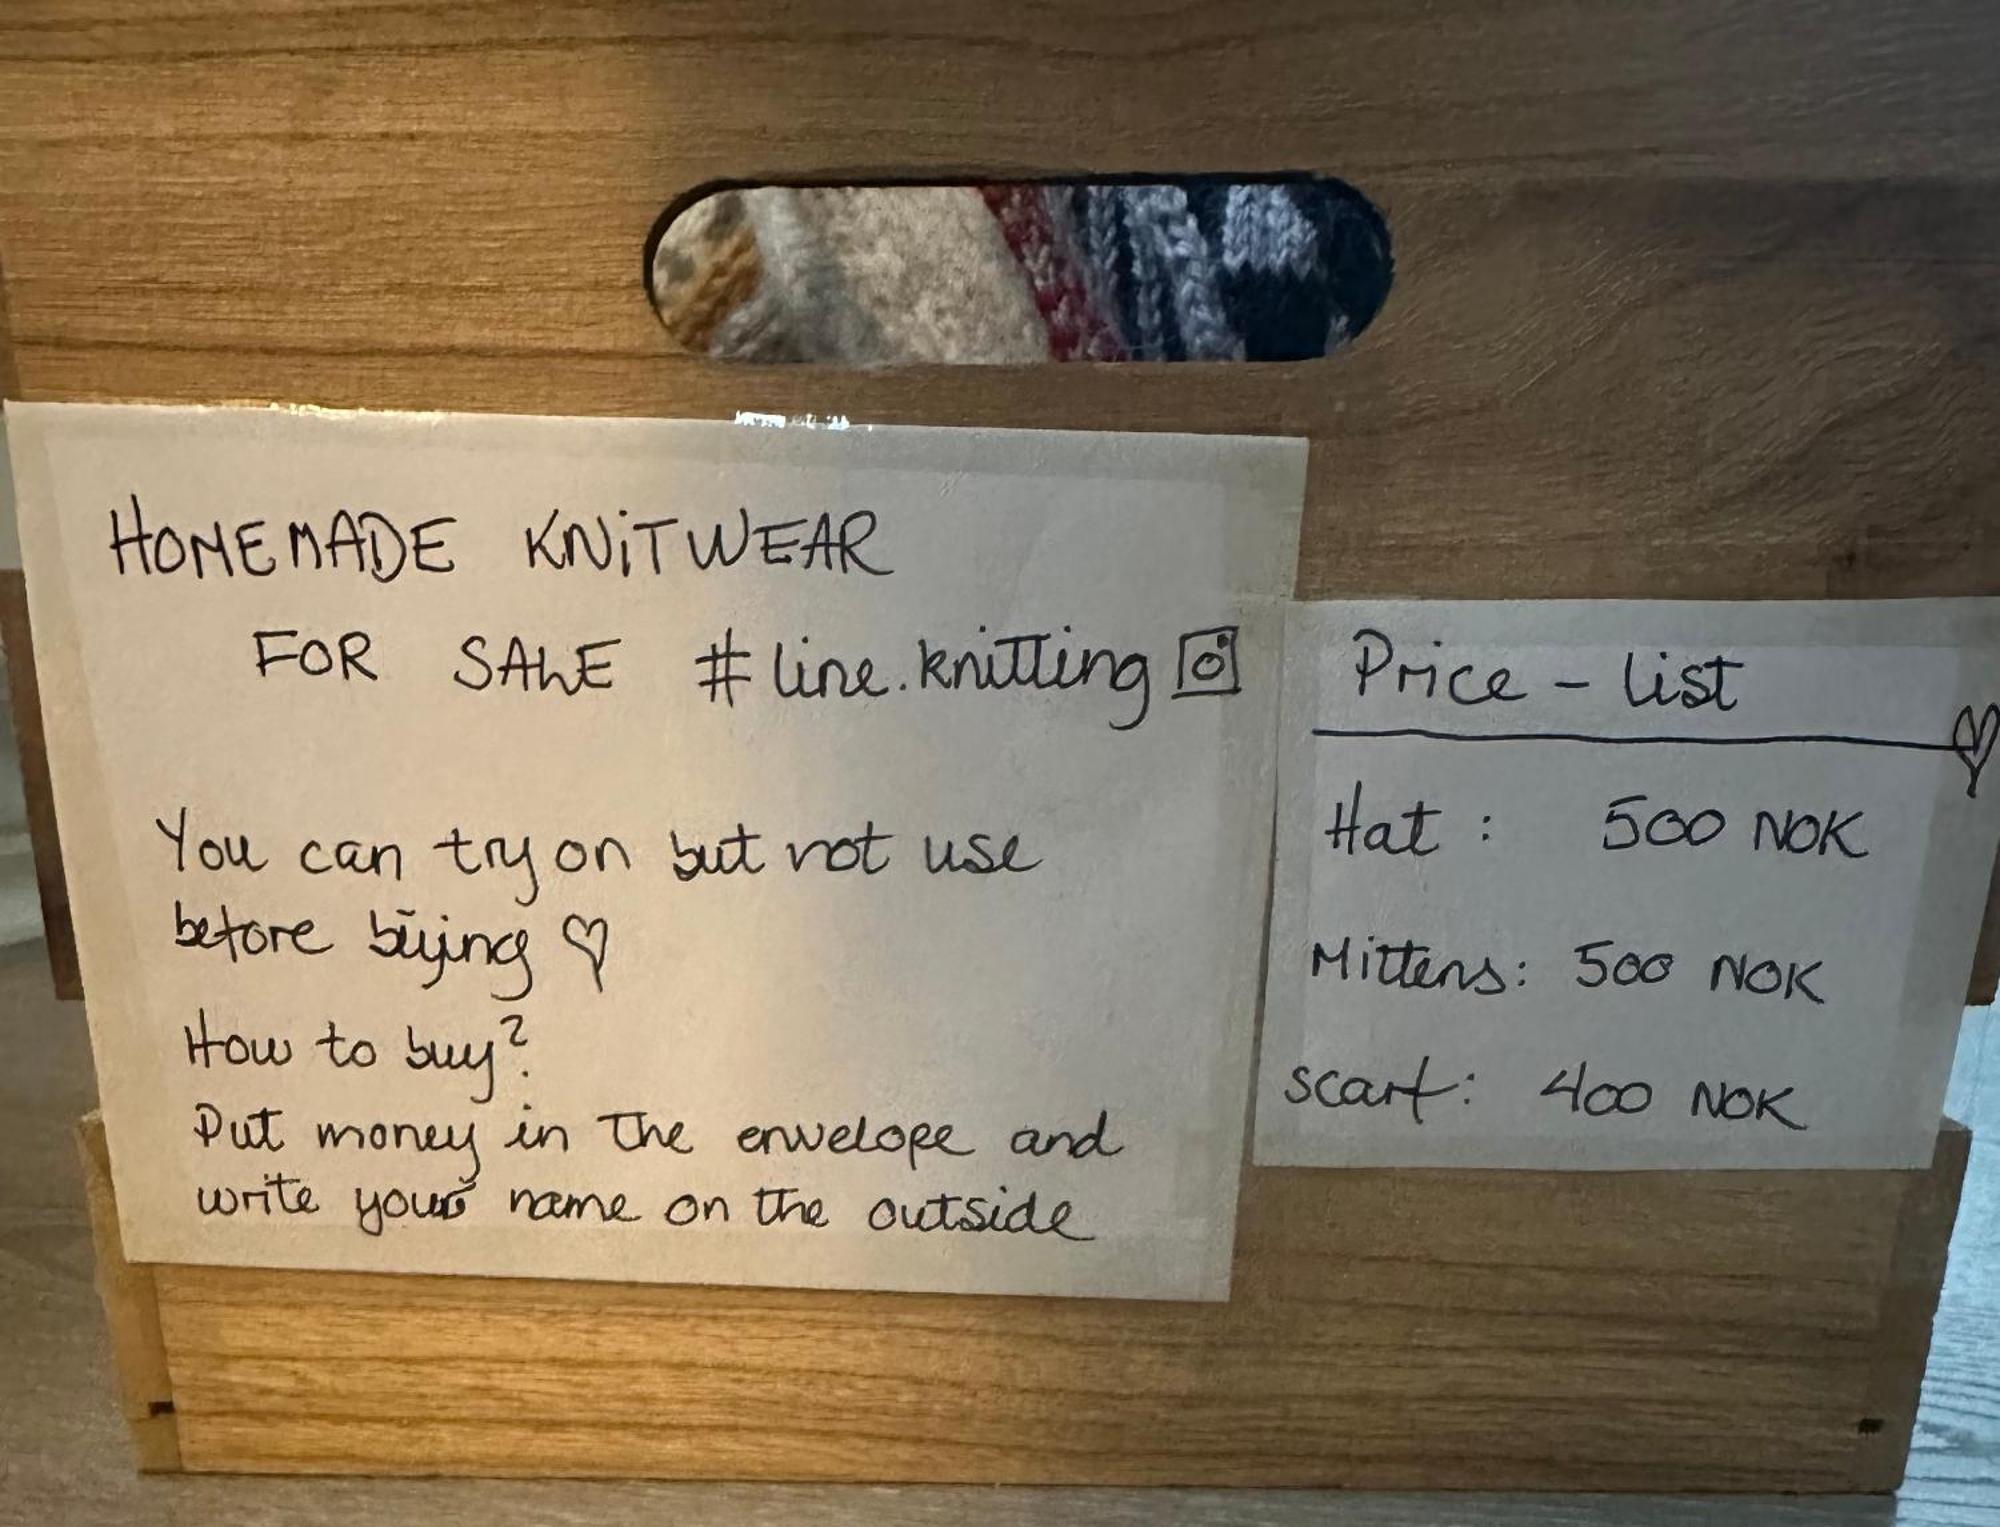 HOMEMADE KNiTWEAR
FOR SALE #line.knitting
You can try on but not use
before büying ♡
How to buy?
Put money in the envelope and
write your name on the outside
Price - list
♡
Hat : 500 NOK
Mittens: 500 NOK
scarf: 400 NOK